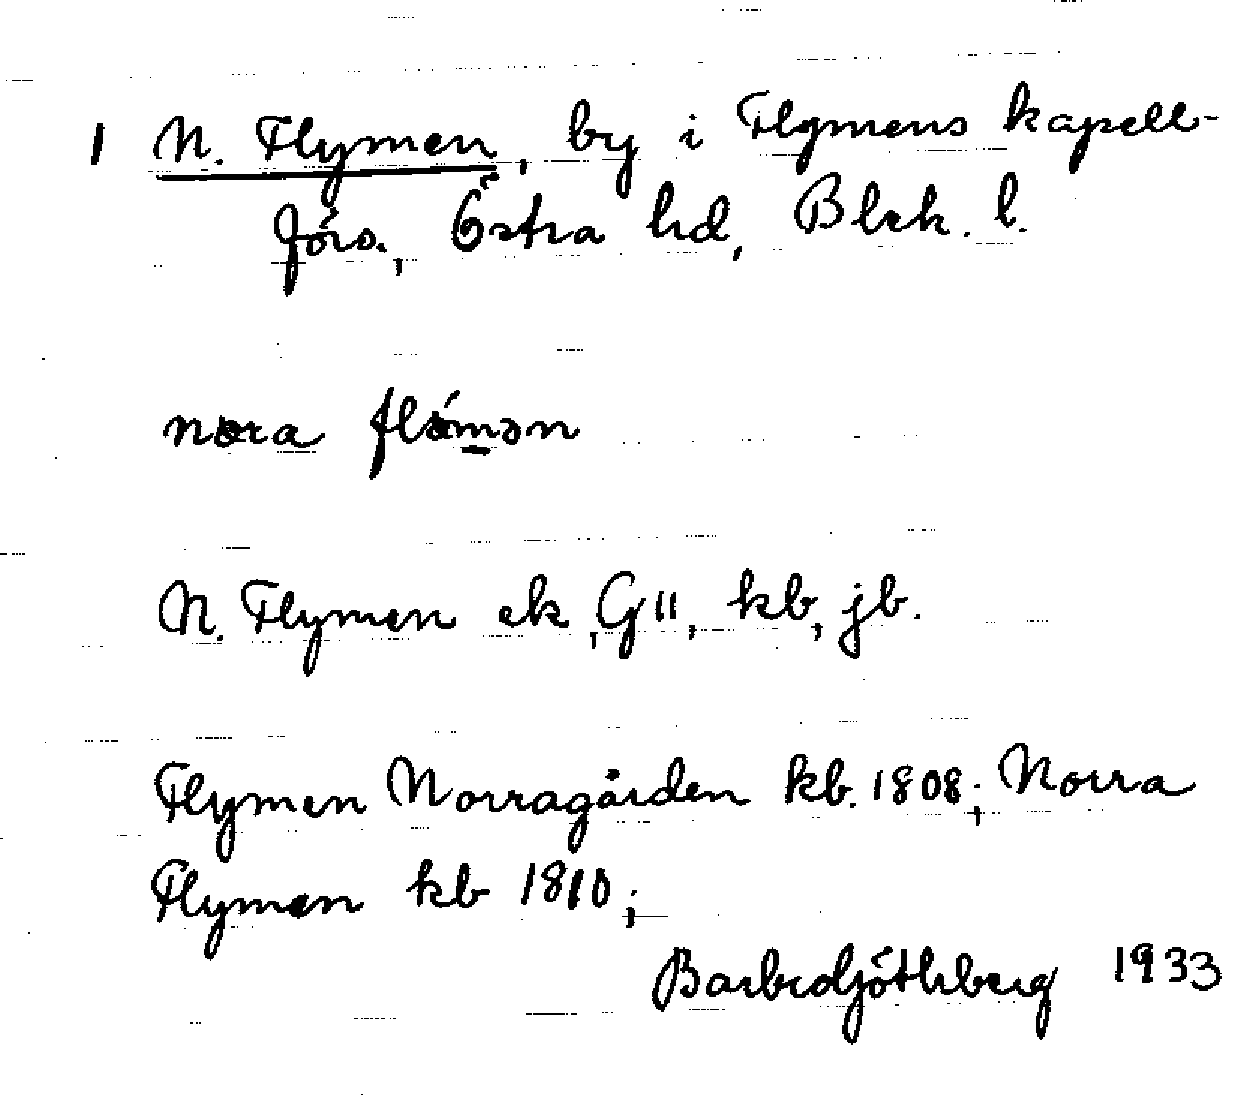 1 N. Flymen, by i Flymens kapell-
förs., Östra hd, Blek. l.
nora flǿmən
N. Flymen ek, GII, kb, jb.
Flymen Norragården kb. 1808; Norra
Flymen kb 1810;
Barbro Götherberg 1933